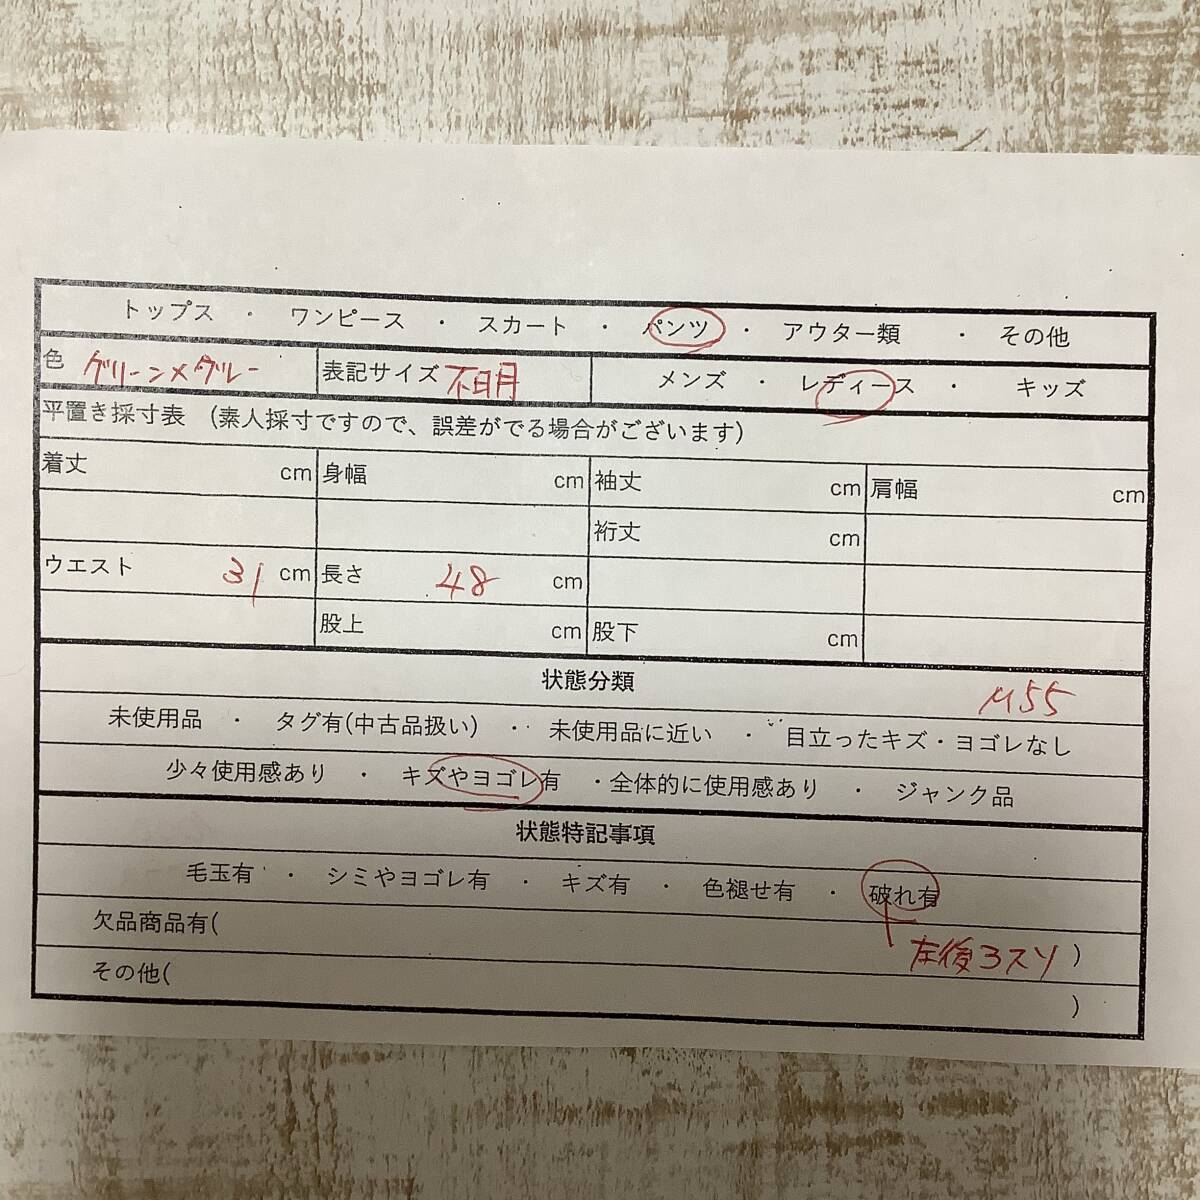 トップス ・ ワンピース ・ スカート ・ パンツ ・ アウター類 ・ その他
色 グリーン×グレー 表記サイズ 不明 メンズ ・ レディース ・ キッズ
平置き採寸表 (素人採寸ですので、誤差がでる場合がございます)
着丈 cm 身幅 cm 袖丈 cm 肩幅 cm
裄丈 cm
ウエスト 31 cm 長さ 48 cm
股上 cm 股下 cm
状態分類
M55
未使用品 ・ タグ有(中古品扱い) ・ 未使用品に近い ・ 目立ったキズ・ヨゴレなし
少々使用感あり ・ キズやヨゴレ有 ・全体的に使用感あり ・ ジャンク品
状態特記事項
毛玉有 ・ シミやヨゴレ有 ・ キズ有 ・ 色褪せ有 ・ 破れ有
欠品商品有( )
左後ろスソ
その他( )